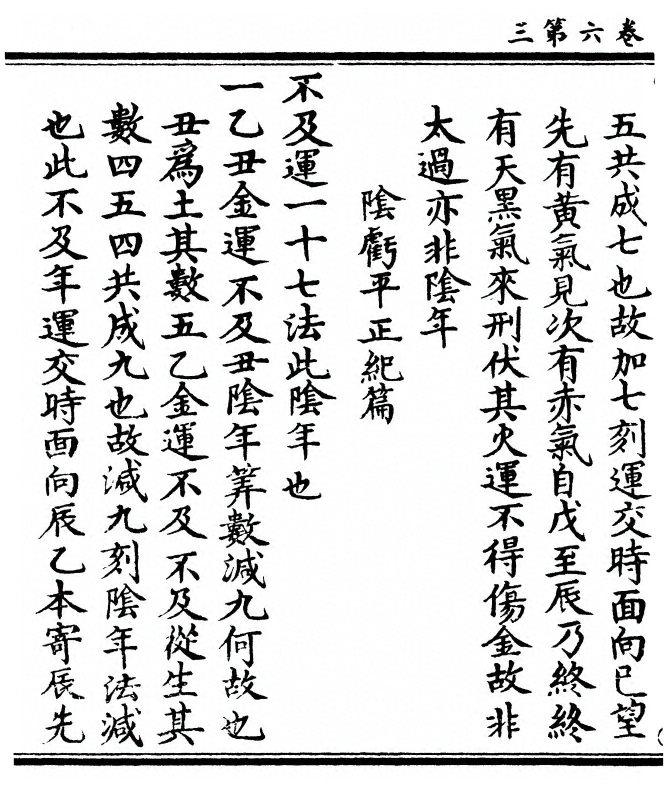 卷六第三
五共成七也故加七刻運交時面向巳望
先有黃氣見次有赤氣自戊至辰乃終終
有天黑氣來刑伏其火運不得傷金故非
太過亦非陰年
陰虧平正紀篇
不及運一十七法此陰年也
一乙丑金運不及丑陰年筭數減九何故也
丑為土其數五乙金運不及不及從生其
數四五四共成九也故減九刻陰年法減
也此不及年運交時面向辰乙本寄辰先